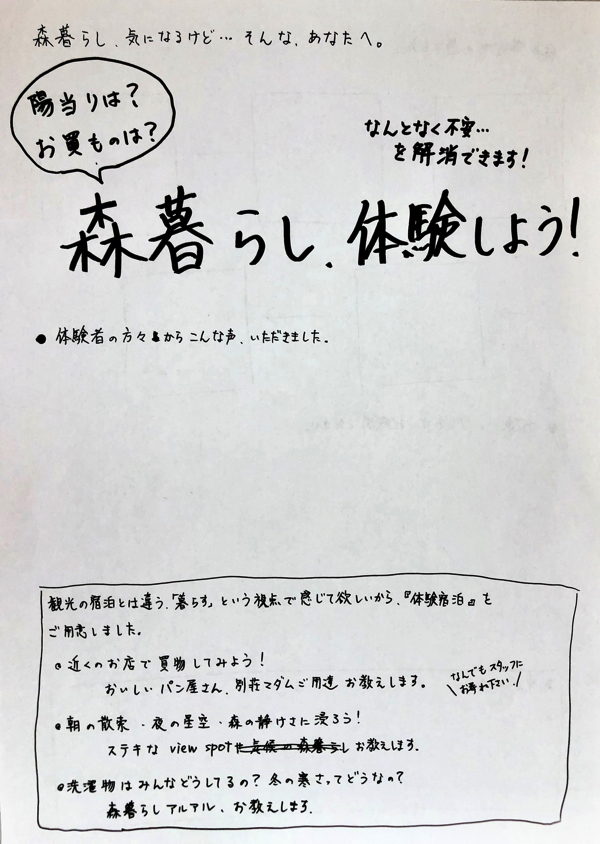 森暮らし、気になるけど… そんな、あなたへ。
陽当りは?
お買ものは?
なんとなく不安…
を解消できます!
森暮らし、体験しよう!
● 体験者の方々からこんな声、いただきました。
観光の宿泊とは違う、「暮らす」という視点で感じて欲しいから、『体験宿泊』を
ご用意しました。
●近くのお店で買物してみよう!
おいしいパン屋さん、別荘マダムご用達 お教えします。
なんでもスタッフに
お尋ね下さい!
●朝の散策・夜の星空・森の静けさに浸ろう!
ステキな view spot お教えします。
●洗濯物はみんなどうしてるの? 冬の寒さってどうなの?
森暮らしアルアル、お教えします。